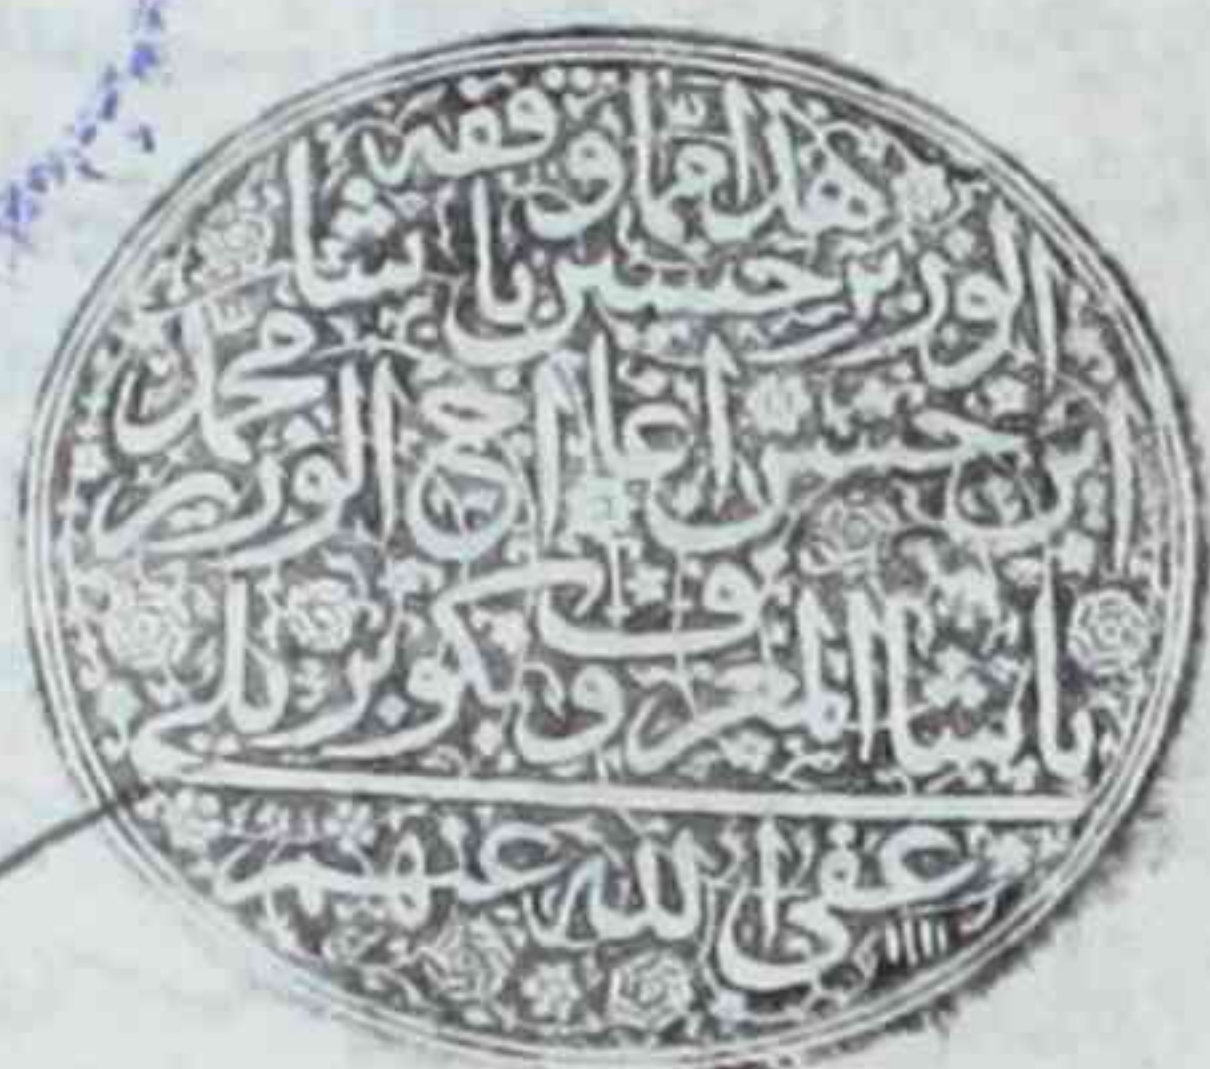 هذا مما وقفه
الوزير حسين باشا
ابن حسن اغا اخ الوزير محمد
باشا المعروف بكوبريلي
عفى الله عنهم
١١١١